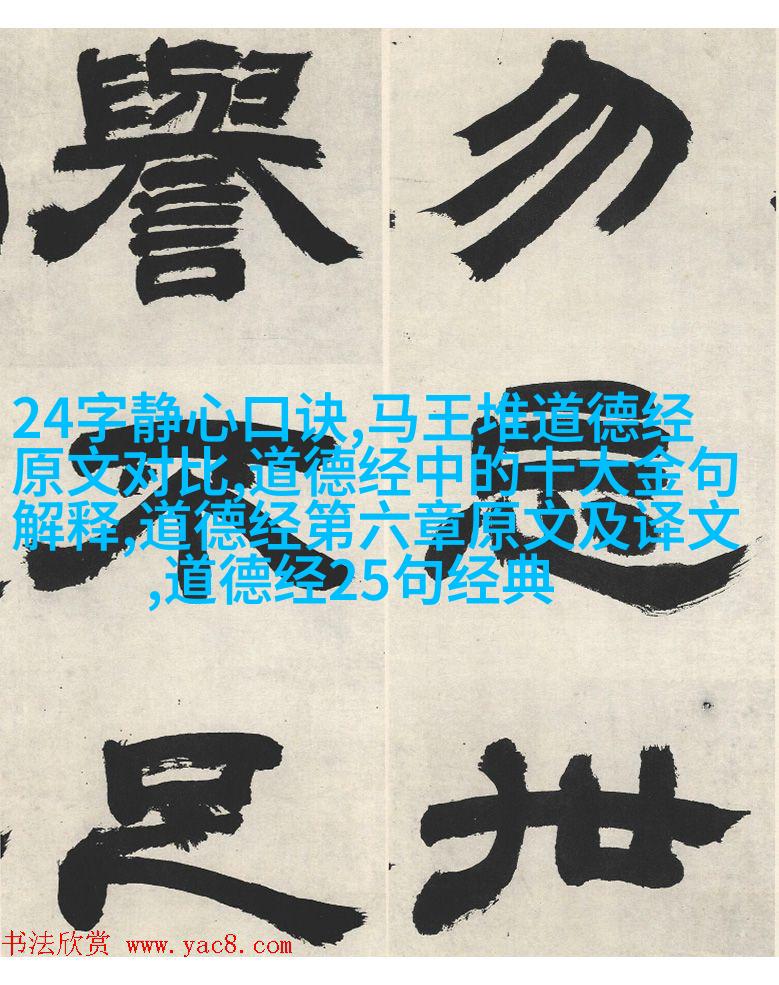 勿忘世
譽不足
24字静心口诀,马王堆道德经
原文对比,道德经中的十大金句
解释,道德经第六章原文及译文
,道德经25句经典
书法欣赏 www.yac8.com